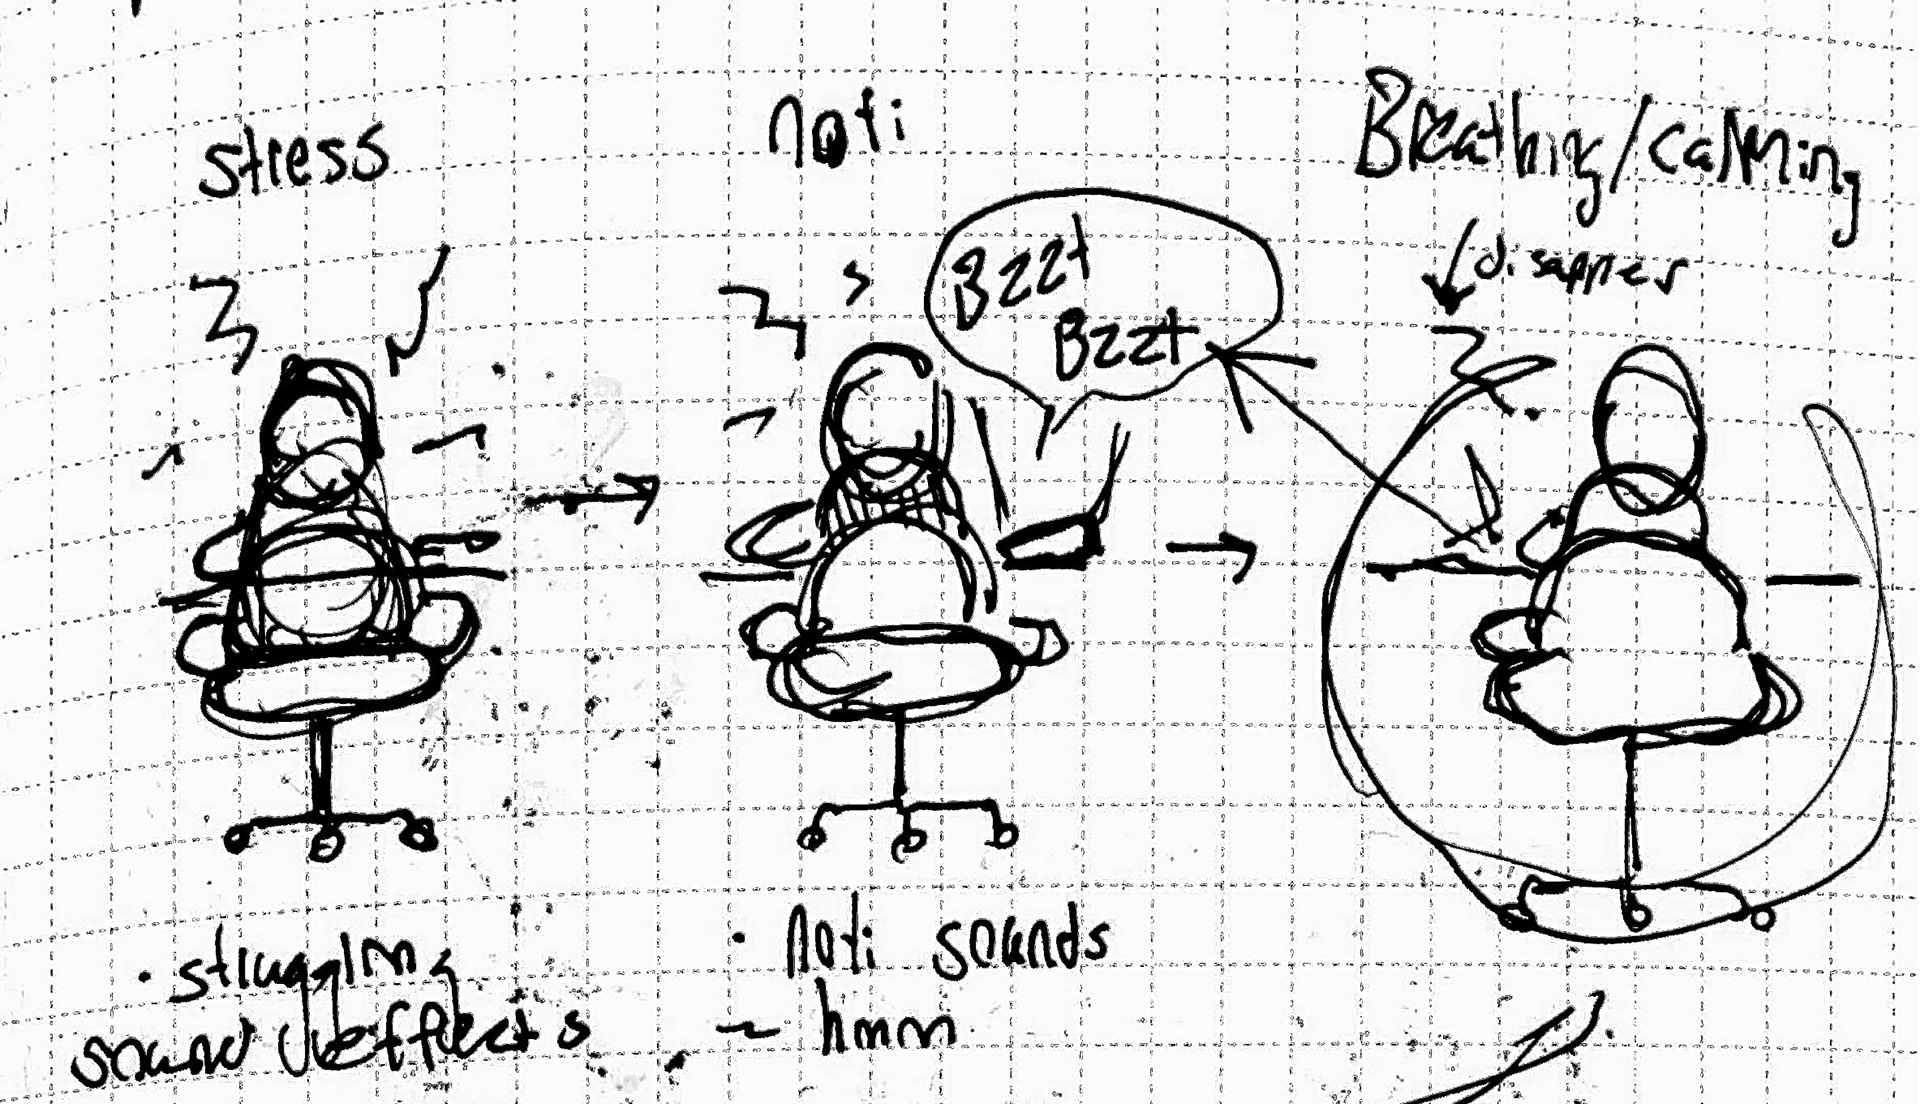 stress
noti
Breathing/calming
disappres
Bzzt
Bzzt
• struggling
sound effects
• noti sounds
~ hmm